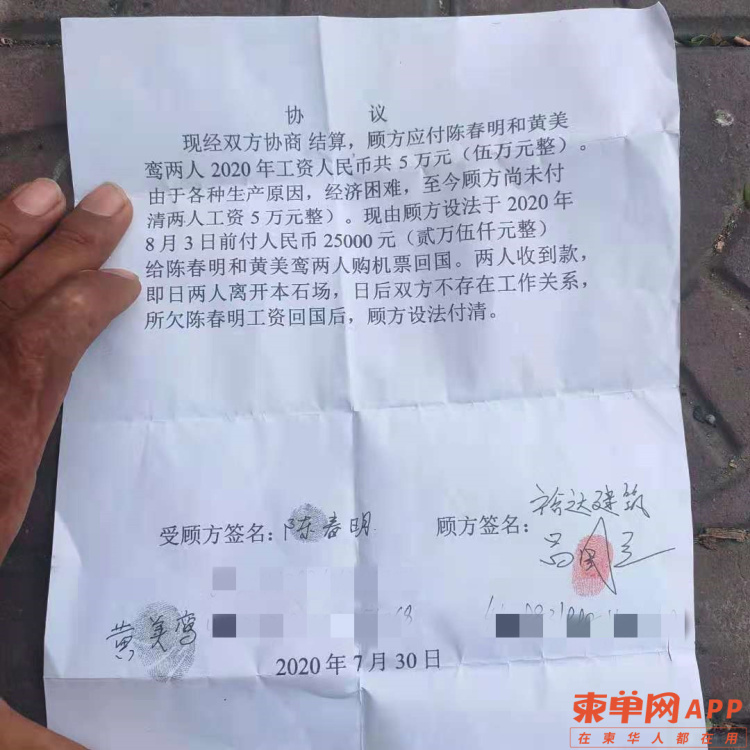 协 议
现经双方协商 结算，顾方应付陈春明和黄美
鸾两人 2020 年工资人民币共 5 万元（伍万元整）。
由于各种生产原因，经济困难，至今顾方尚未付
清两人工资 5 万元整）。现由顾方设法于 2020 年
8 月 3 日前付人民币 25000 元（贰万伍仟元整）
给陈春明和黄美鸾两人购机票回国。两人收到款，
即日两人离开本石场，日后双方不存在工作关系，
所欠陈春明工资回国后，顾方设法付清。
受顾方签名：陈春明 顾方签名：
裕达建筑
黄美鸾
2020 年 7 月 30 日
柬单网APP
在柬华人都在用